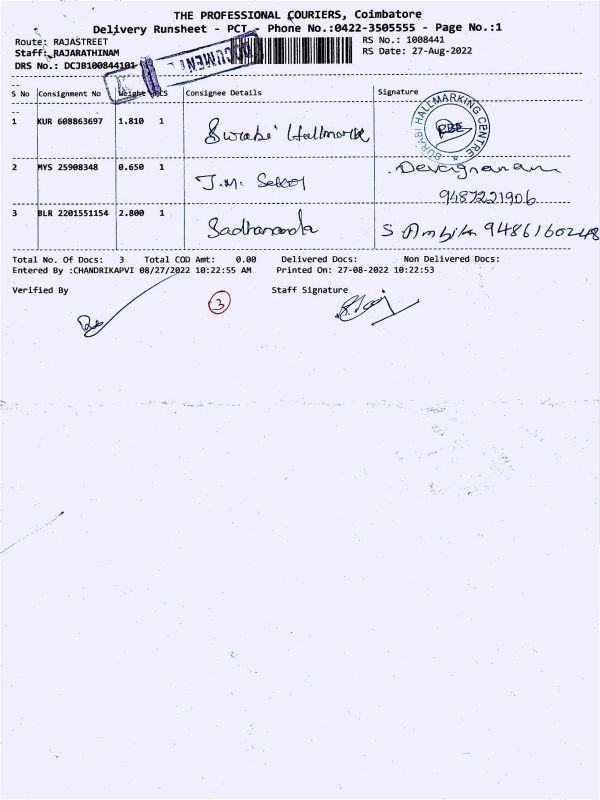 THE PROFESSIONAL COURIERS, Coimbatore
Delivery Runsheet - PCT - Phone No.:0422-3505555 - Page No.:1
Route: RAJASTREET
RS No.: 1008441
Staff: RAJARATHINAM
RS Date: 27-Aug-2022
DRS No.: DCJB100844101
DOCUMENT
S No Consignment No Weight PCS Consignee Details Signature
1 KUR 608863697 1.810 1 Surabi Hallmark
SURABI HALLMARKING CENTRE
CBE
2 MYS 25908348 0.650 1 J.M.
9487221906
3 BLR 2201551154 2.800 1 Sadhananda S Ambika 9486160248
Total No. Of Docs: 3 Total COD Amt: 0.00 Delivered Docs: Non Delivered Docs:
Entered By :CHANDRIKAPVI 08/27/2022 10:22:55 AM Printed On: 27-08-2022 10:22:53
Verified By Staff Signature
3